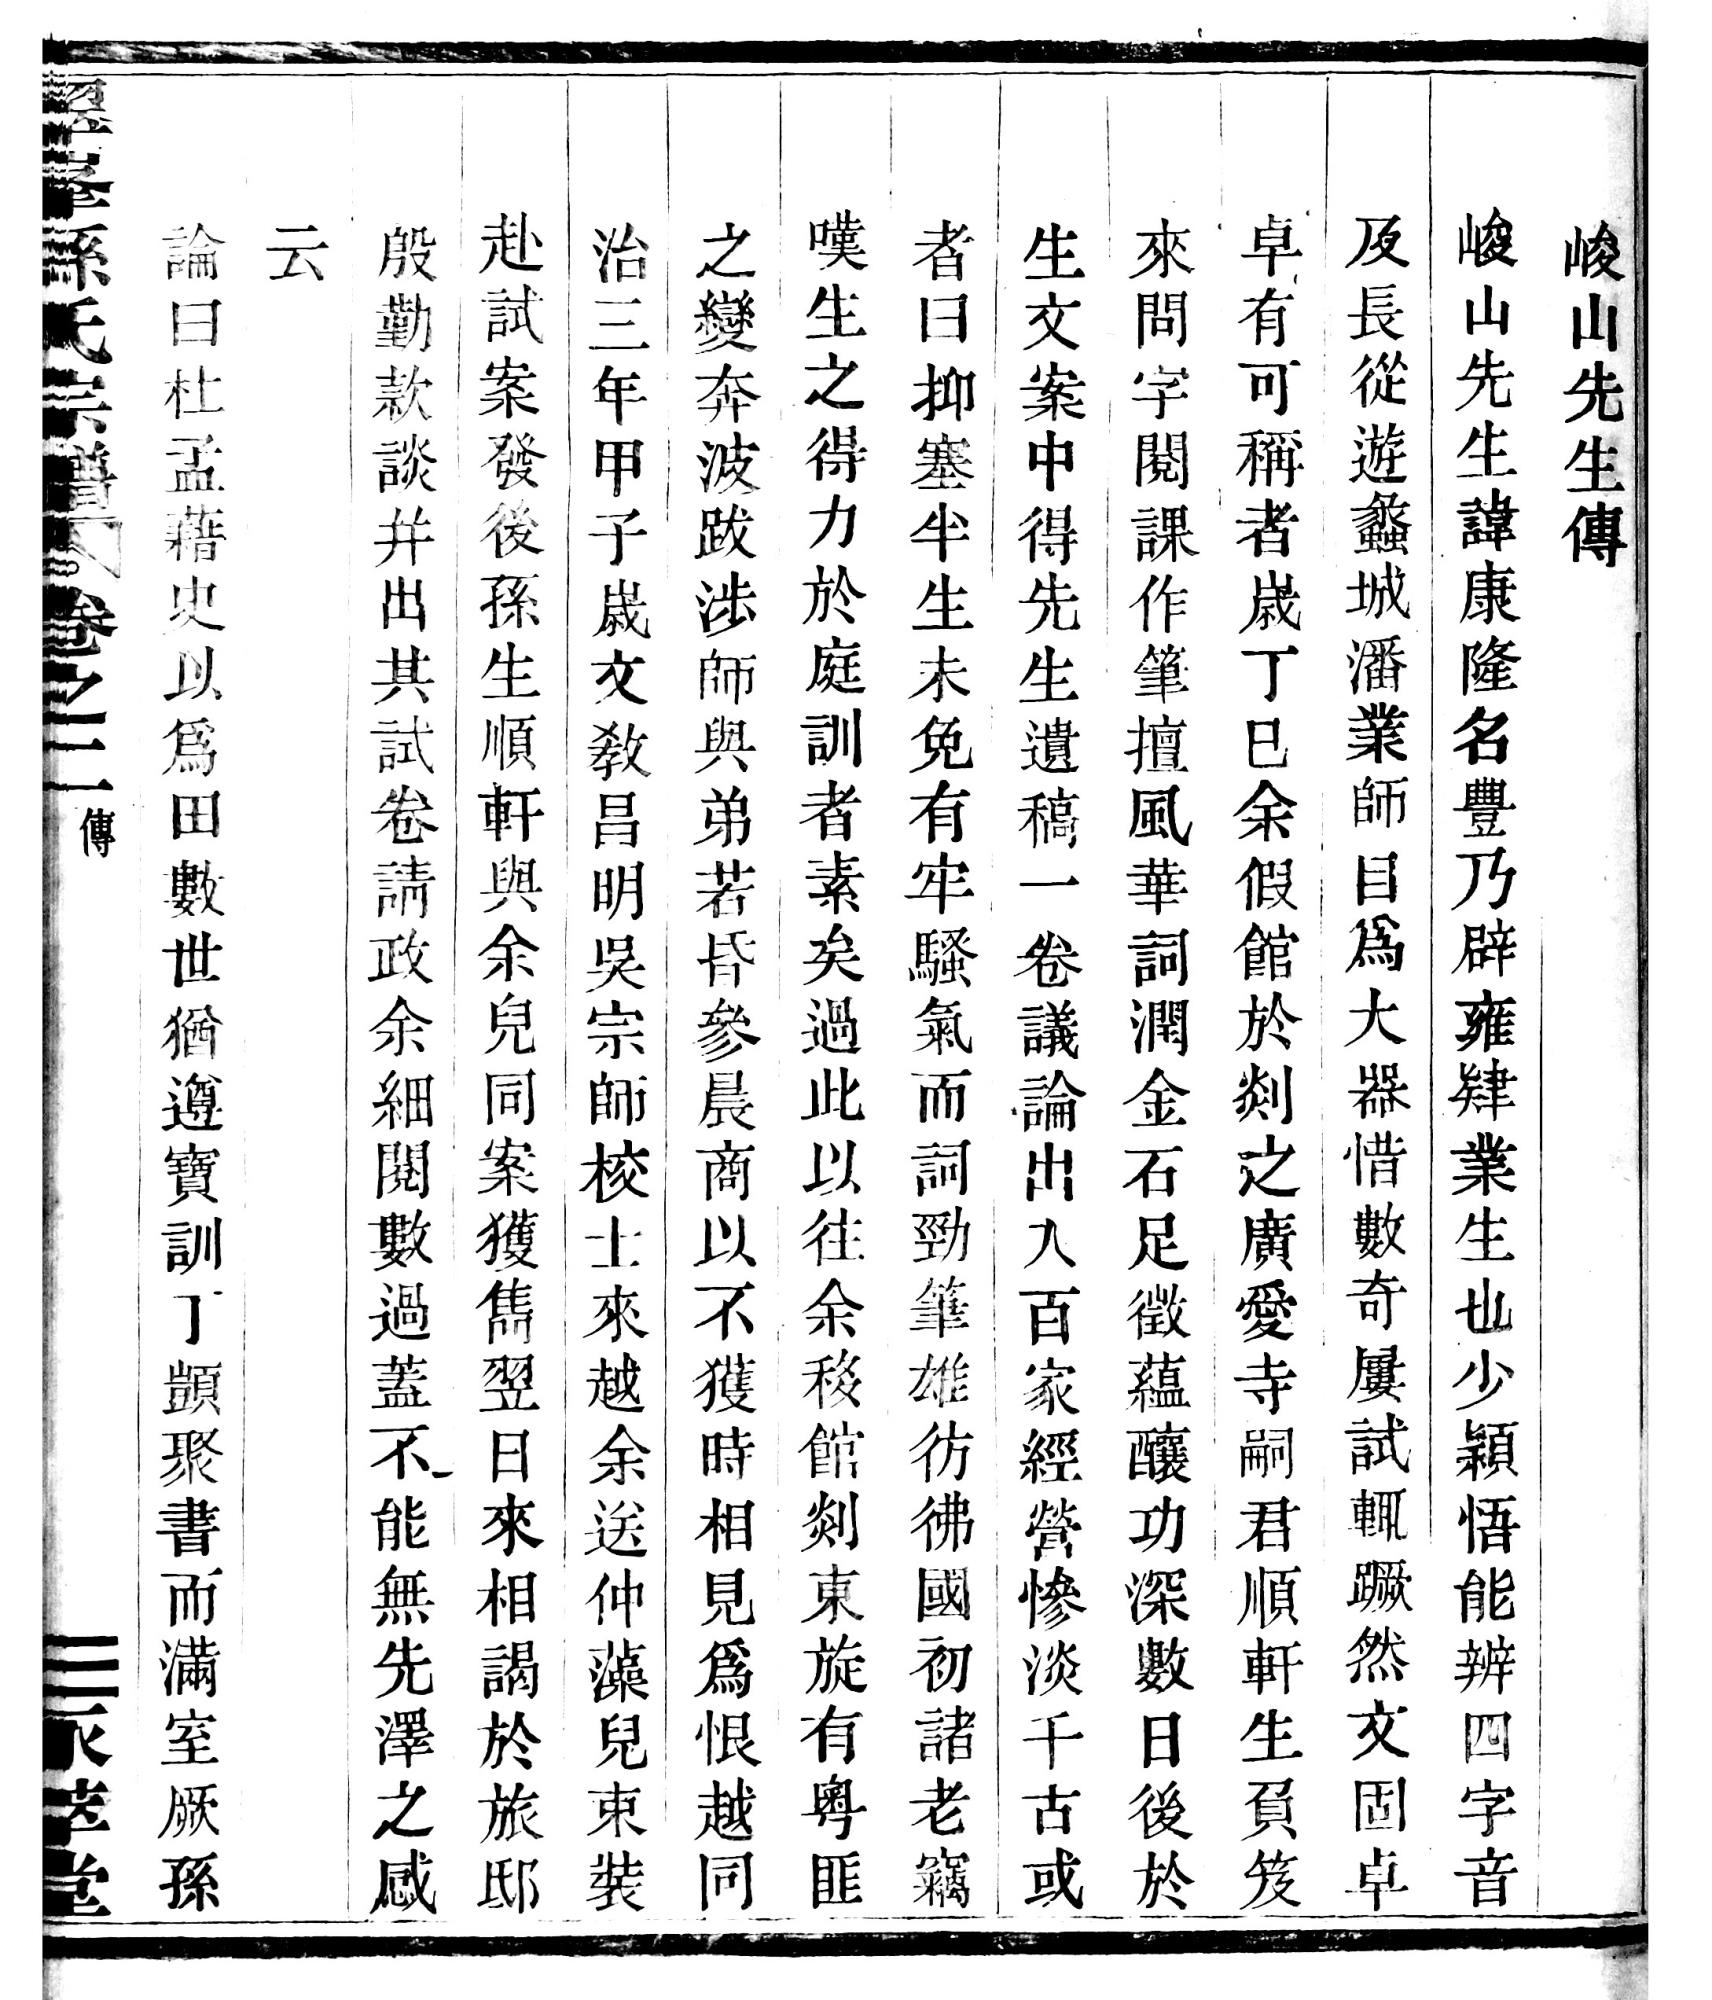 峻山先生傳
峻山先生諱康隆名豐乃辟雍肄業生也少穎悟能辨四字音
及長從遊蠡城潘業師目爲大器惜數奇屢試輒蹶然文固卓
卓有可稱者歲丁巳余假館於剡之廣愛寺嗣君順軒生負笈
來問字閱課作筆擅風華詞潤金石足徵蘊釀功深數日後於
生文案中得先生遺稿一卷議論出入百家經營慘淡千古或
者曰抑塞半生未免有牢騷氣而詞勁筆雄彷彿國初諸老竊
嘆生之得力於庭訓者素矣過此以往余移館剡東旋有粵匪
之變奔波跋涉師與弟若昏參晨商以不獲時相見爲恨越同
治三年甲子歲文教昌明吳宗師校士來越余送仲藻兒束裝
赴試案發後孫生順軒與余兒同案獲雋翌日來相謁於旅邸
殷勤款談并出其試卷請政余細閱數過蓋不能無先澤之感
云
論曰杜孟藉史以爲田數世猶遵寶訓丁顗聚書而滿室厥孫
孫氏宗譜 卷之二 傳 三 永萃堂